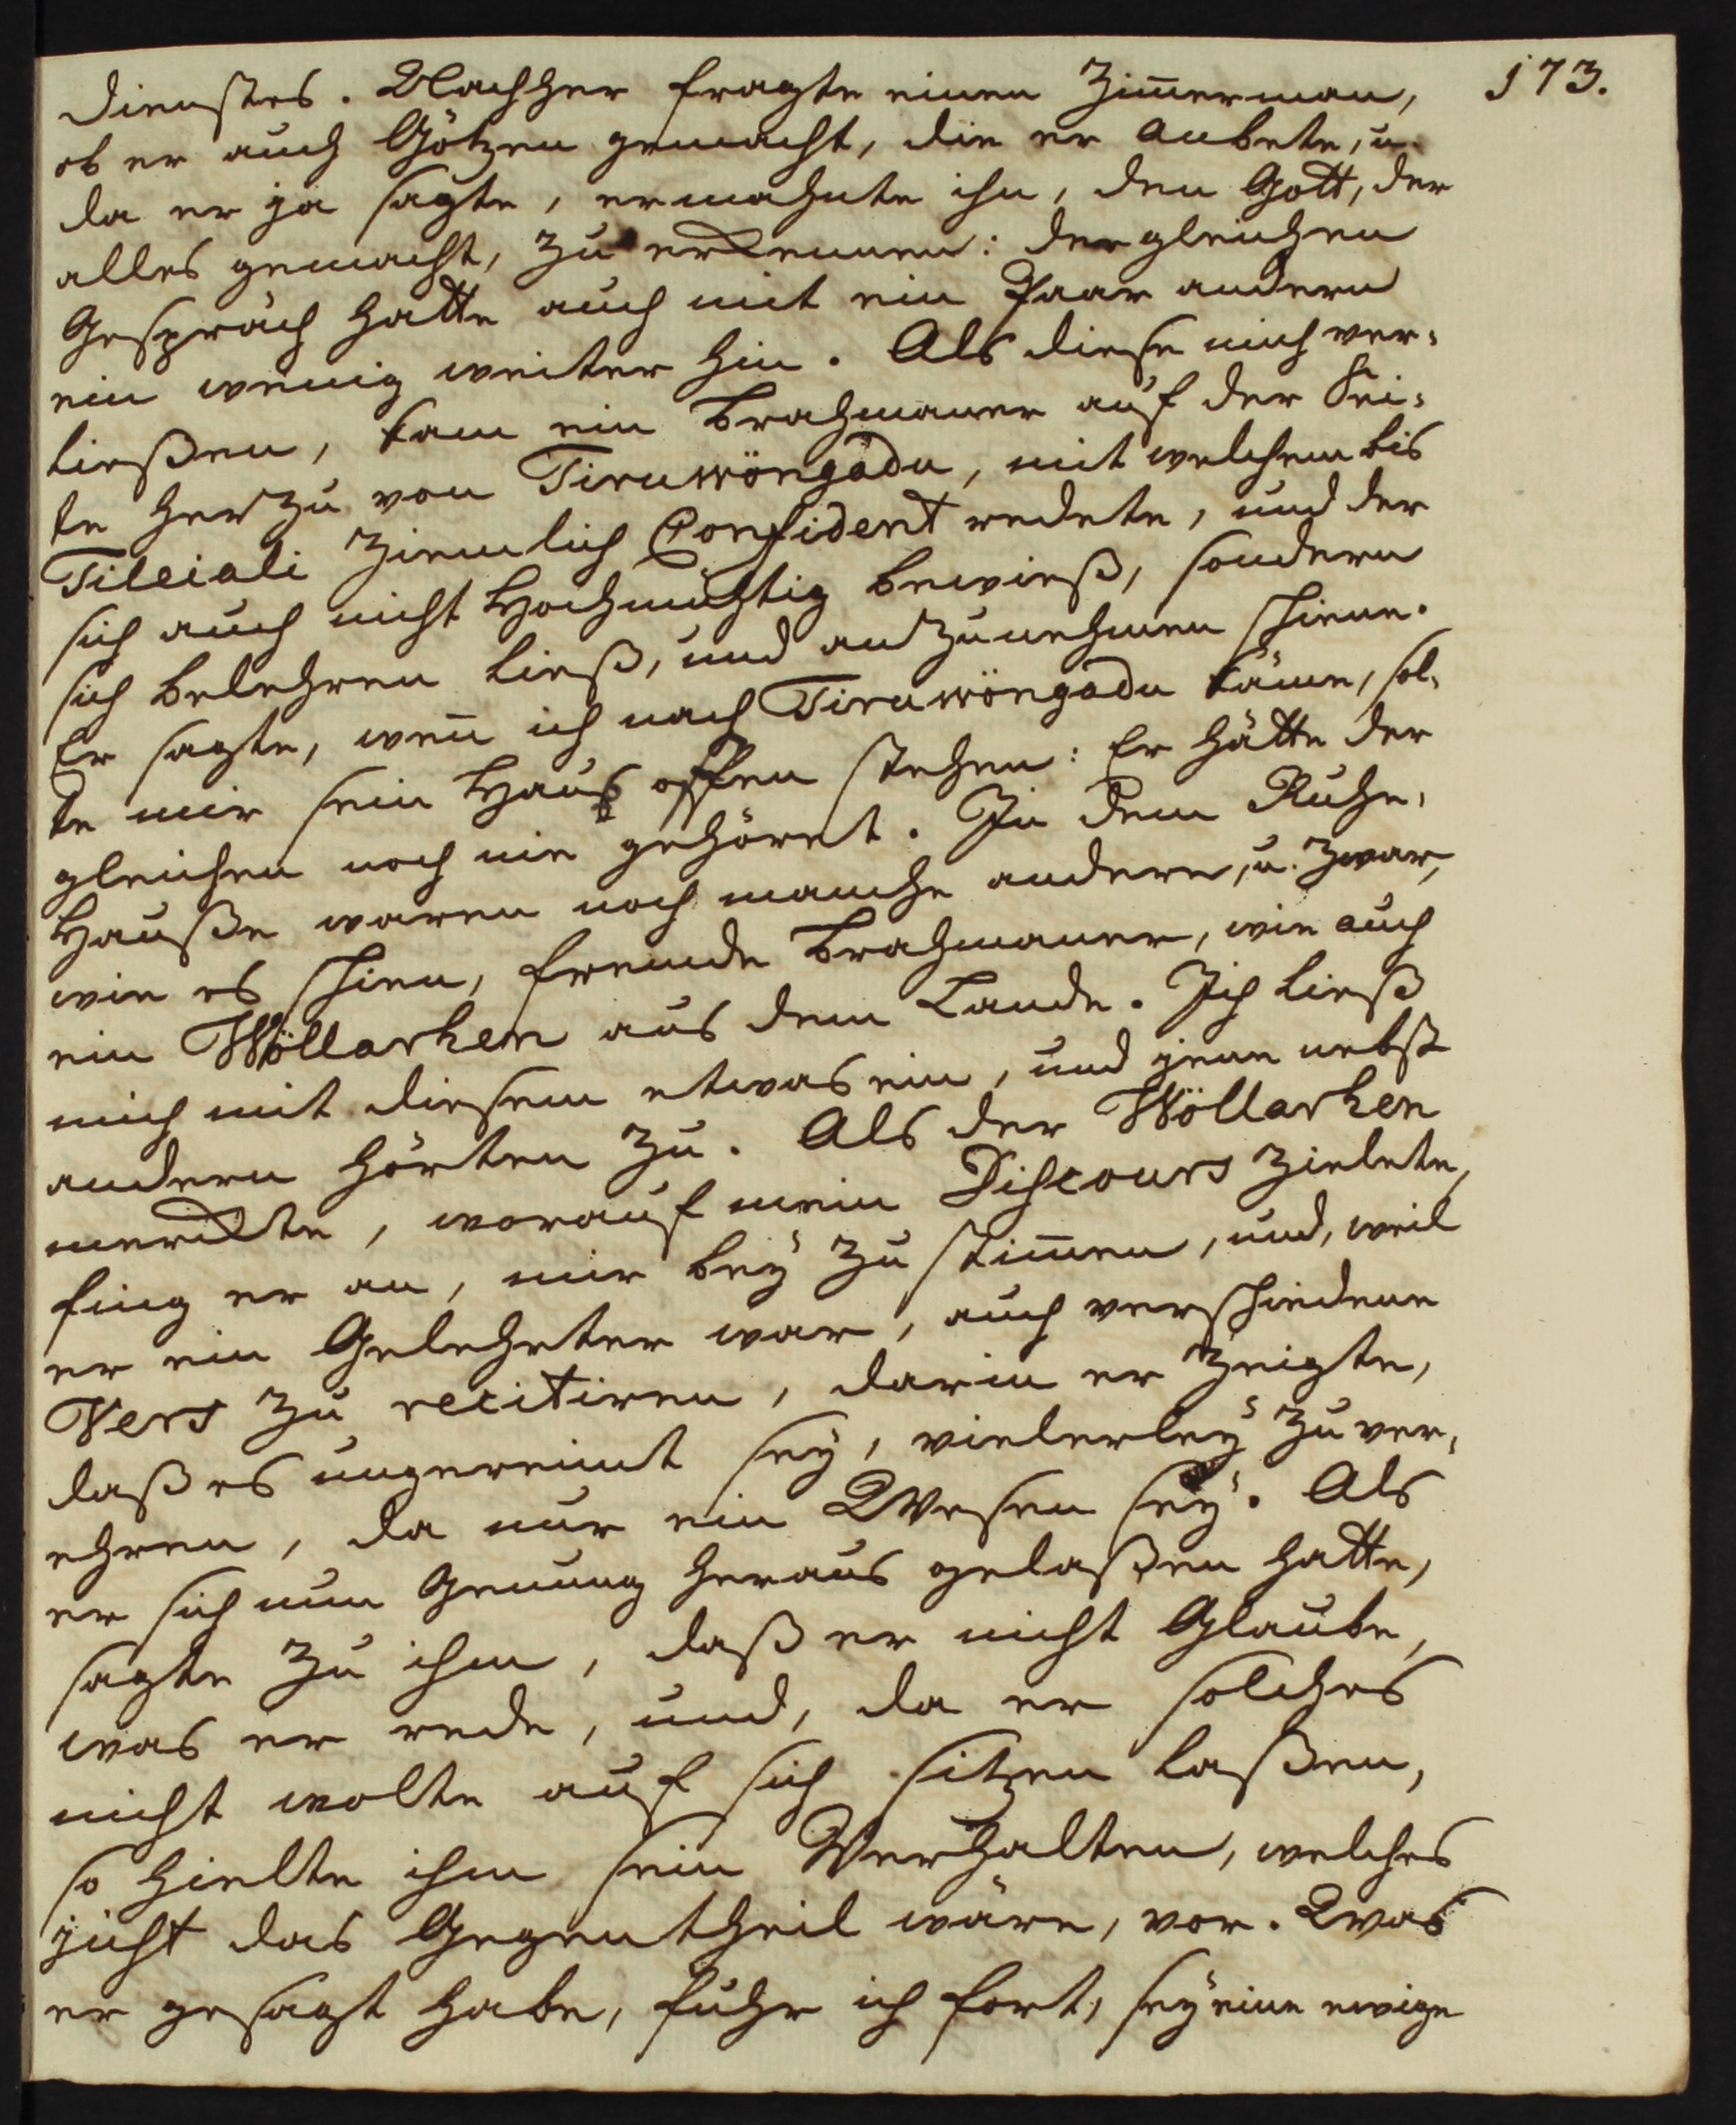 173.
Dienstes. Nachher fragte einen Zim̅erman,
ob er auch Götzen gemacht, die er anbete, u.
da er ja sagte, ermahnte ihn, den Gott, der
alles gemacht, zu erkennen: dergleichen
Gespräch hatte auch mit ein Paar andern
ein wenig weiter hin. Als diese mich ver-
ließen, kam ein Brahmaner auf der Sei-
te herzu von Tiruwöngādu, mit welchem bis
Tilleiali ziemlich Confident redete, und der
sich auch nicht Hochmüthig bewieß, sondern
sich belehren ließ, und anzunehmen schiene.
Er sagte, wen̅ ich nach Tiruwöngādu käme, sol-
te mir sein Hauß offen stehen: Er hätte der
gleichen noch nie gehöret. In dem Ruhe-
Hauße waren noch manche andere, u. zwar,
wie es schien, fremde Brahmaner, wie auch
ein Wöllarhen aus dem Lande. Ich ließ
mich mit diesem etwas ein, und jene nebst
andern hörten zu. Als der Wöllarhen
merckte, worauf mein Discours zielete,
fing er an, mir bey zu stim̅en, und, weil
er ein Gelehrter war, auch verschiedene
Vers zu recitiren, darin er zeigte,
daß es ungereimt sey, vielerley zu ver-
ehren, da nur ein Wesen sey. Als
er sich nun Genung heraus gelaßen hatte,
sagte zu ihm, daß er nicht Glaube,
was er rede, und, da er solches
nicht wolte auf sich sitzen laßen,
so hielte ihm sein Verhalten, welches
just das Gegentheil wäre, vor. Was
er gesagt habe, fuhr ich fort, sey eine ewige